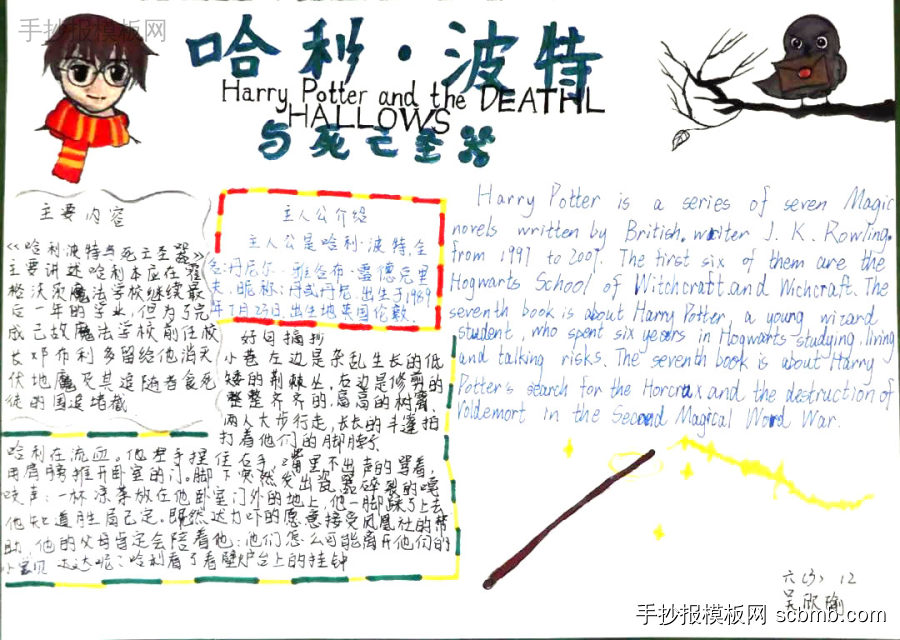 手抄报模板网
哈利·波特
Harry Potter and the DEATHL
HALLOWS
与死亡圣器
主要内容
《哈利·波特与死亡圣器》
主要讲述哈利本应在霍
格沃茨魔法学校继续最
后一年的学业,但为了完
成已故魔法学校前任校
长邓布利多留给他消灭
伏地魔及其追随者食死
徒的围追堵截
主人公介绍
主人公是哈利·波特,全
名:丹尼尔·雅各布·雷德克里
夫,昵称:丹或丹尼.出生于1989
年7月23日.出生地英国伦敦.
好句摘抄
小巷左边是杂乱生长的低
矮的荆棘丛,右边是修剪的
整整齐齐的,高高的树篱.
两人大步行走,长长的斗篷拍
打着他们的脚腕
哈利在流血。他左手捏住右手,嘴里不出声的骂着,
用肩膀推开卧室的门。脚下突然发出瓷器碎裂的嘎
吱声:一杯凉茶放在他卧室门外的地上,他一脚踩了上去
他知道胜局已定.既然达力吓的愿意接受凤凰社的帮
助,他的父母肯定会陪着他:他们怎么可能离开他们的
小宝贝达达呢:哈利看了看壁炉台上的挂钟
Harry Potter is a series of seven Magic
novels written by British. writer J. K. Rowling.
from 1997 to 2007. The first six of them are the
Hogwarts School of Witchcraft.and Wichcraft. The
seventh book is about Harry Potter, a young wizard
student, who spent six years in Hogwarts studying, living
and talking risks. The seventh book is about Harry
Potter's search for the Horcrax and the destruction of
Voldemort in the Second Magical Word War.
六(3) 12
吴欣瑜
手抄报模板网 scbmb.com